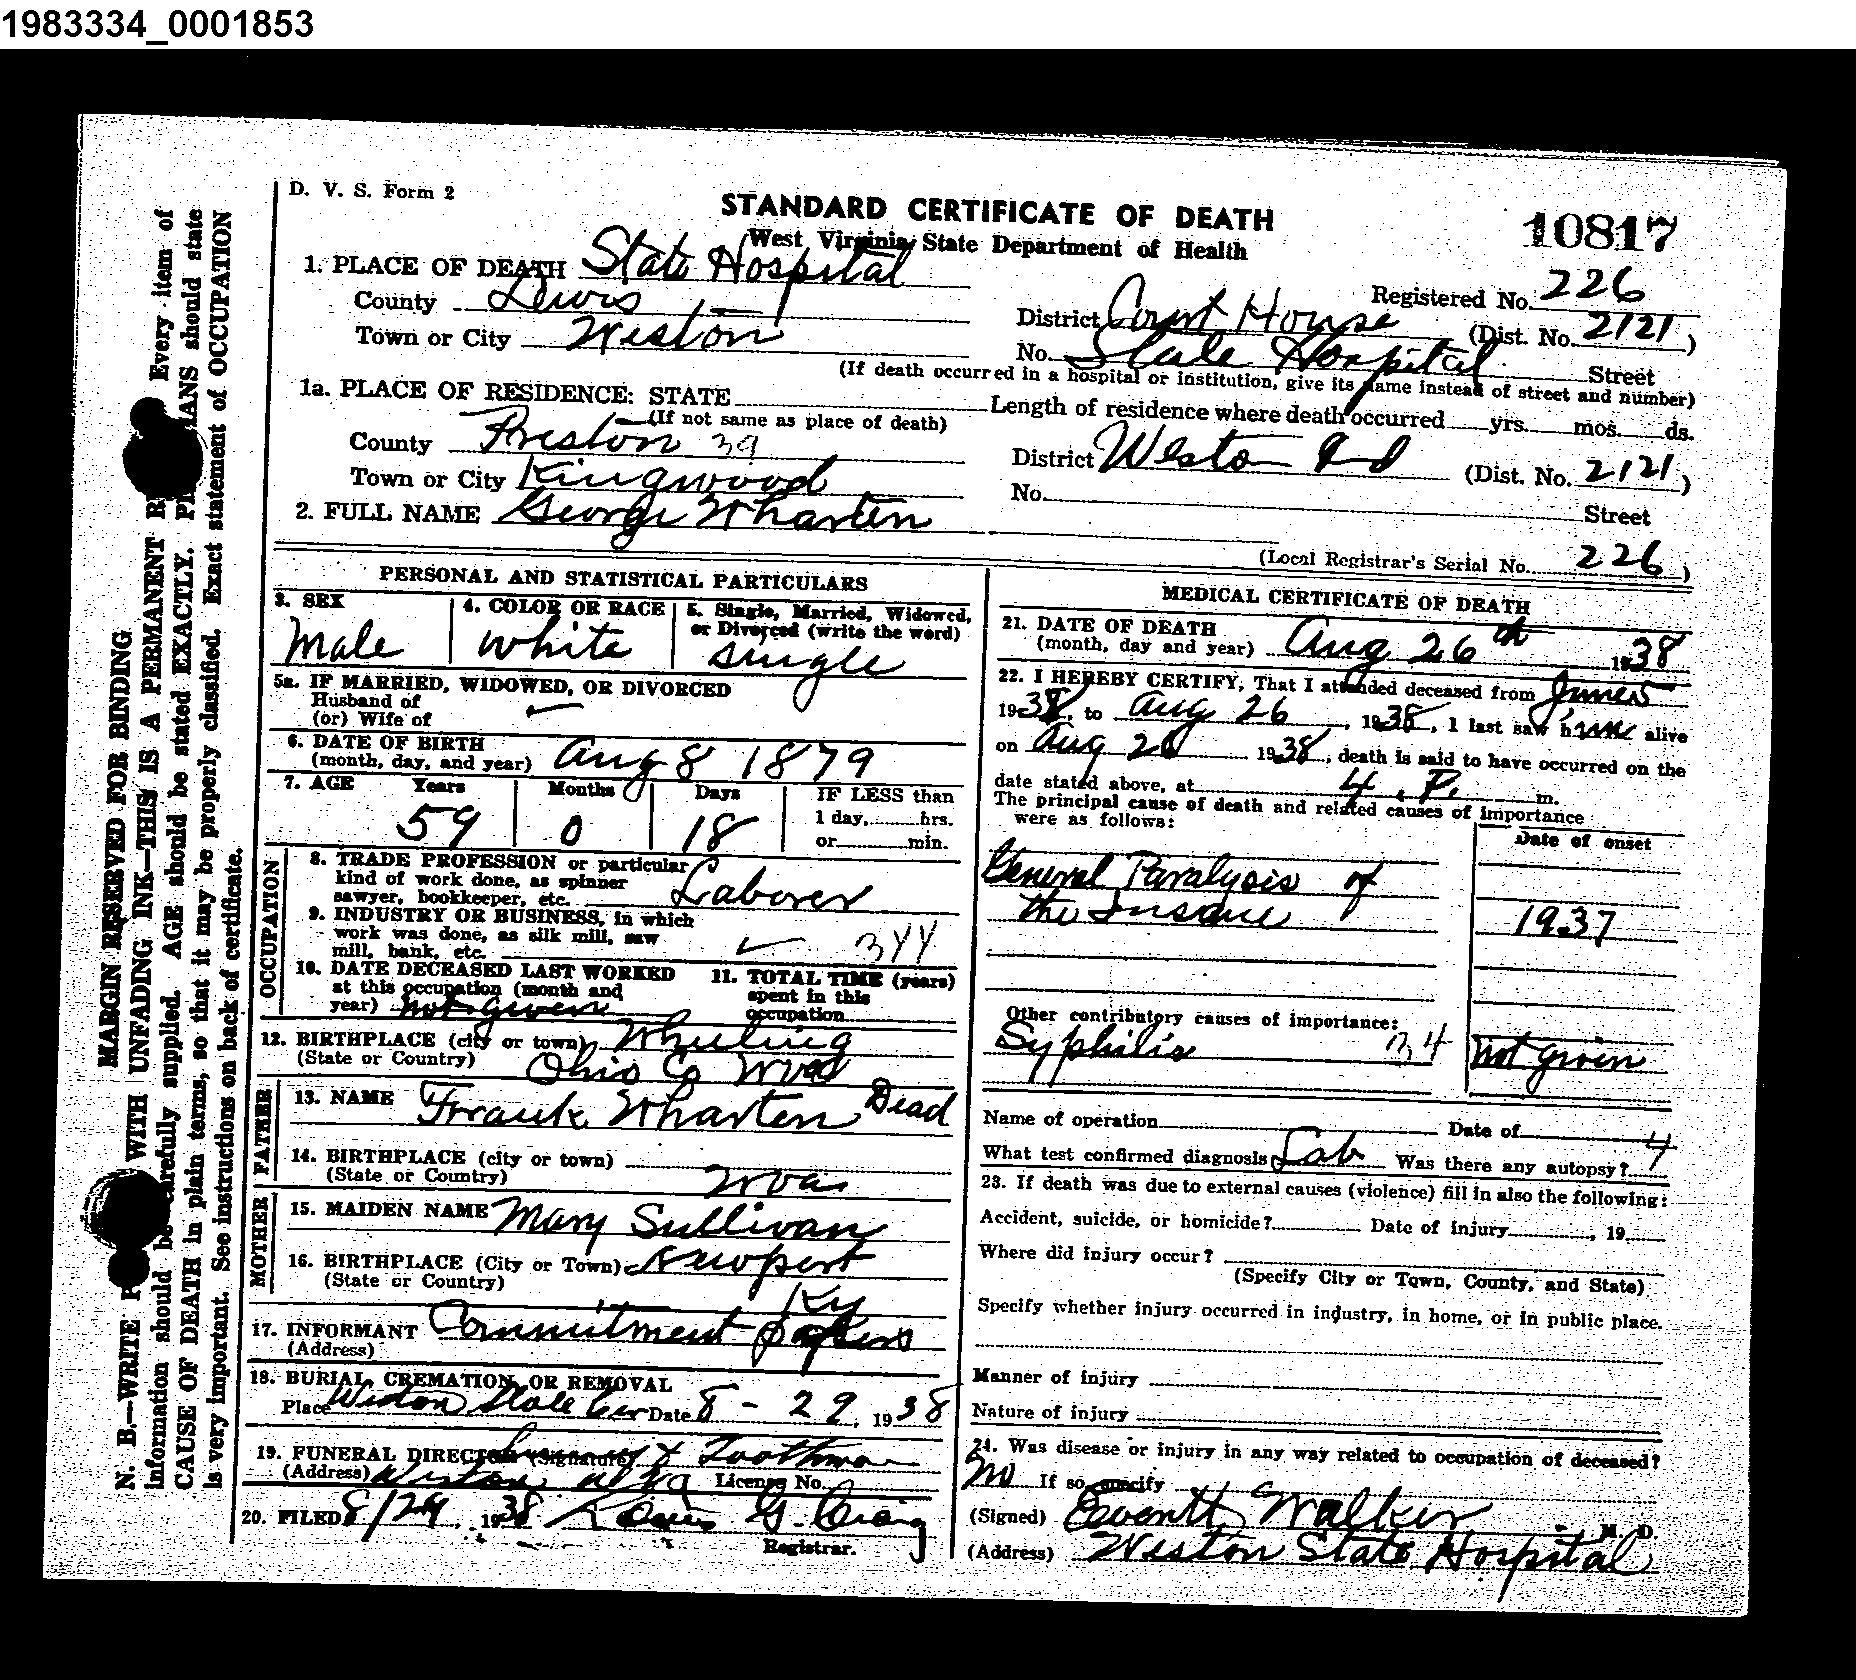 1983334_0001853
D. V. S. Form 2
STANDARD CERTIFICATE OF DEATH
West Virginia State Department of Health
10817
1. PLACE OF DEATH State Hospital
Registered No. 226
County Lewis
District Court House (Dist. No. 2121)
Town or City Weston
No. State Hospital Street
(If death occurred in a hospital or institution, give its name instead of street and number)
1a. PLACE OF RESIDENCE: STATE
Length of residence where death occurred yrs. mos. ds.
(If not same as place of death)
County Preston 39
District Weston (Dist. No. 2121)
Town or City Kingwood
No. Street
2. FULL NAME George Wharten
(Local Registrar's Serial No. 226)
PERSONAL AND STATISTICAL PARTICULARS
3. SEX
Male
4. COLOR OR RACE
White
5. Single, Married, Widowed,
or Divorced (write the word)
Single
5a. IF MARRIED, WIDOWED, OR DIVORCED
Husband of
(or) Wife of
6. DATE OF BIRTH
(month, day, and year) Aug 8 1879
7. AGE Years Months Days IF LESS than
59 0 18 1 day, hrs.
or min.
OCCUPATION
8. TRADE PROFESSION or particular
kind of work done, as spinner
sawyer, bookkeeper, etc. Laborer
9. INDUSTRY OR BUSINESS, in which
work was done, as silk mill, saw
mill, bank, etc. 344
10. DATE DECEASED LAST WORKED
at this occupation (month and
year) not given
11. TOTAL TIME (years)
spent in this
occupation
12. BIRTHPLACE (city or town) Wheeling
(State or Country) Ohio Co WVa
FATHER
13. NAME Frank Wharten Dead
14. BIRTHPLACE (city or town)
(State or Country) WVa
MOTHER
15. MAIDEN NAME Mary Sullivan
16. BIRTHPLACE (City or Town) Newport
(State or Country) Ky
17. INFORMANT Commitment papers
(Address)
18. BURIAL, CREMATION, OR REMOVAL
Place Weston State Cem Date 8 - 29, 1938
19. FUNERAL DIRECTOR (Signature) & Toothman
(Address) Weston W Va License No.
20. FILED 8/29, 1938 Louis G. Craig
Registrar.
MEDICAL CERTIFICATE OF DEATH
21. DATE OF DEATH
(month, day and year) Aug 26th 1938
22. I HEREBY CERTIFY, That I attended deceased from June
1938, to Aug 26, 1938, I last saw him alive
on Aug 26 1938, death is said to have occurred on the
date stated above, at 4. P. m.
The principal cause of death and related causes of importance
were as follows:
Date of onset
General Paralysis of
the Insane 1937
Other contributory causes of importance:
Syphilis 34 not given
Name of operation Date of
What test confirmed diagnosis Lab Was there any autopsy?
23. If death was due to external causes (violence) fill in also the following:
Accident, suicide, or homicide? Date of injury , 19
Where did injury occur?
(Specify City or Town, County, and State)
Specify whether injury occurred in industry, in home, or in public place.
Manner of injury
Nature of injury
24. Was disease or injury in any way related to occupation of deceased?
No If so, specify
(Signed) Everett Walker M. D.
(Address) Weston State Hospital
MARGIN RESERVED FOR BINDING
N. B.—WRITE WITH UNFADING INK—THIS IS A PERMANENT Every item of
information should be carefully supplied. AGE should be stated EXACTLY. should state
CAUSE OF DEATH in plain terms, so that it may be properly classified. Exact statement of OCCUPATION
is very important. See instructions on back of certificate.